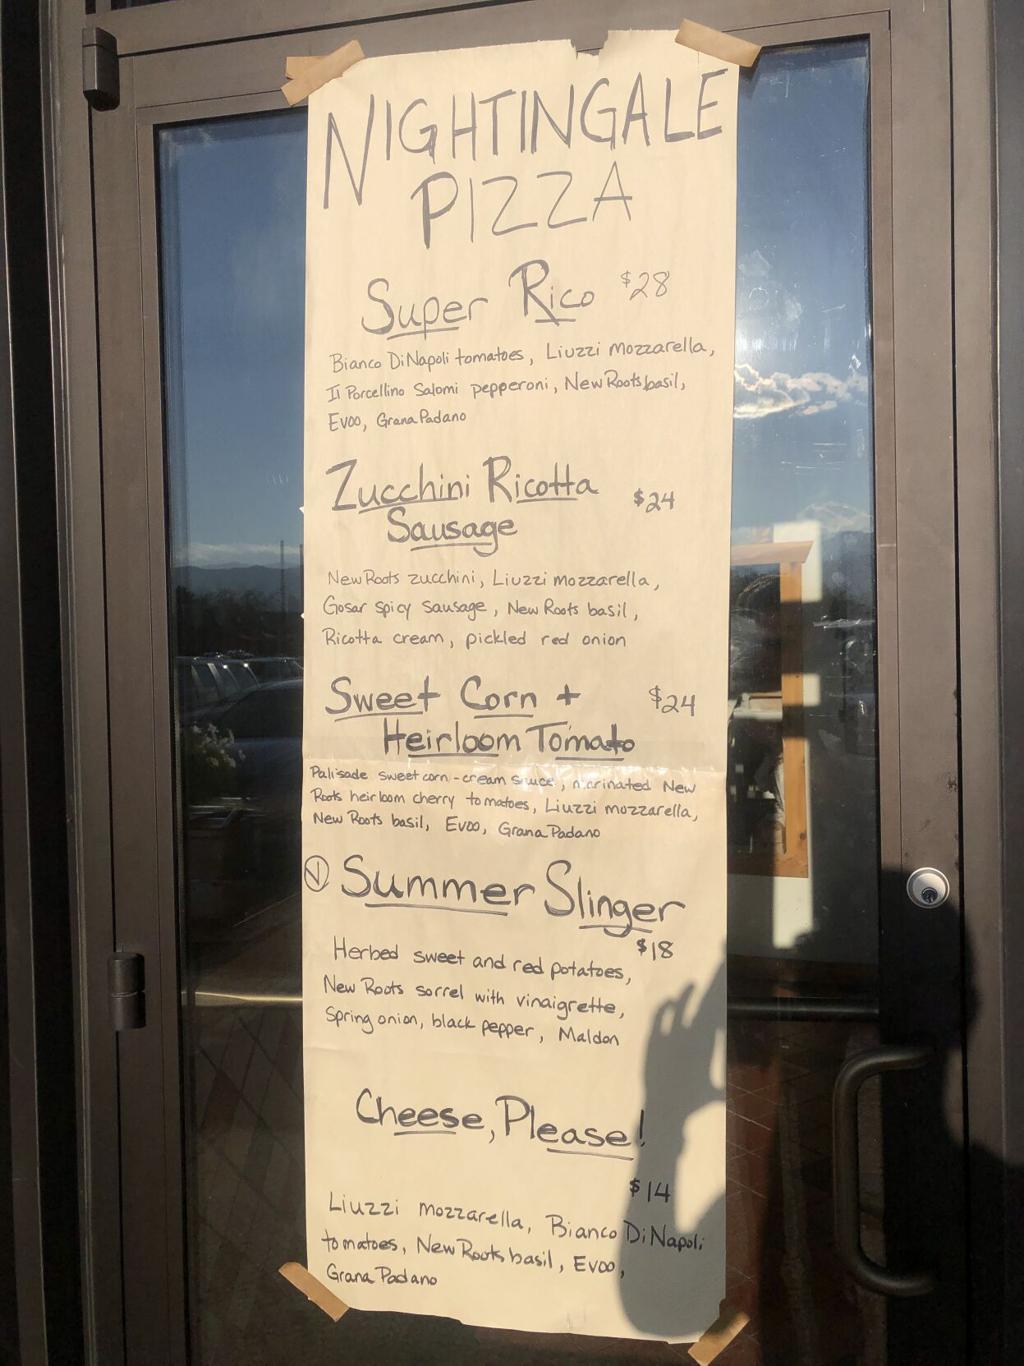 NIGHTINGALE
PIZZA
Super Rico $28
Bianco DiNapoli tomatoes, Liuzzi mozzarella,
Il Porcellino Salomi pepperoni, New Roots basil,
Evoo, Grana Padano
Zucchini Ricotta $24
Sausage
New Roots zucchini, Liuzzi mozzarella,
Gosar spicy sausage, New Roots basil,
Ricotta cream, pickled red onion
Sweet Corn + $24
Heirloom Tomato
Palisade sweet corn-cream sauce, marinated New
Roots heirloom cherry tomatoes, Liuzzi mozzarella,
New Roots basil, Evoo, Grana Padano
V Summer Slinger
$18
Herbed sweet and red potatoes,
New Roots sorrel with vinaigrette,
Spring onion, black pepper, Maldon
Cheese, Please!
$14
Liuzzi mozzarella, Bianco DiNapoli
tomatoes, New Roots basil, Evoo,
Grana Padano